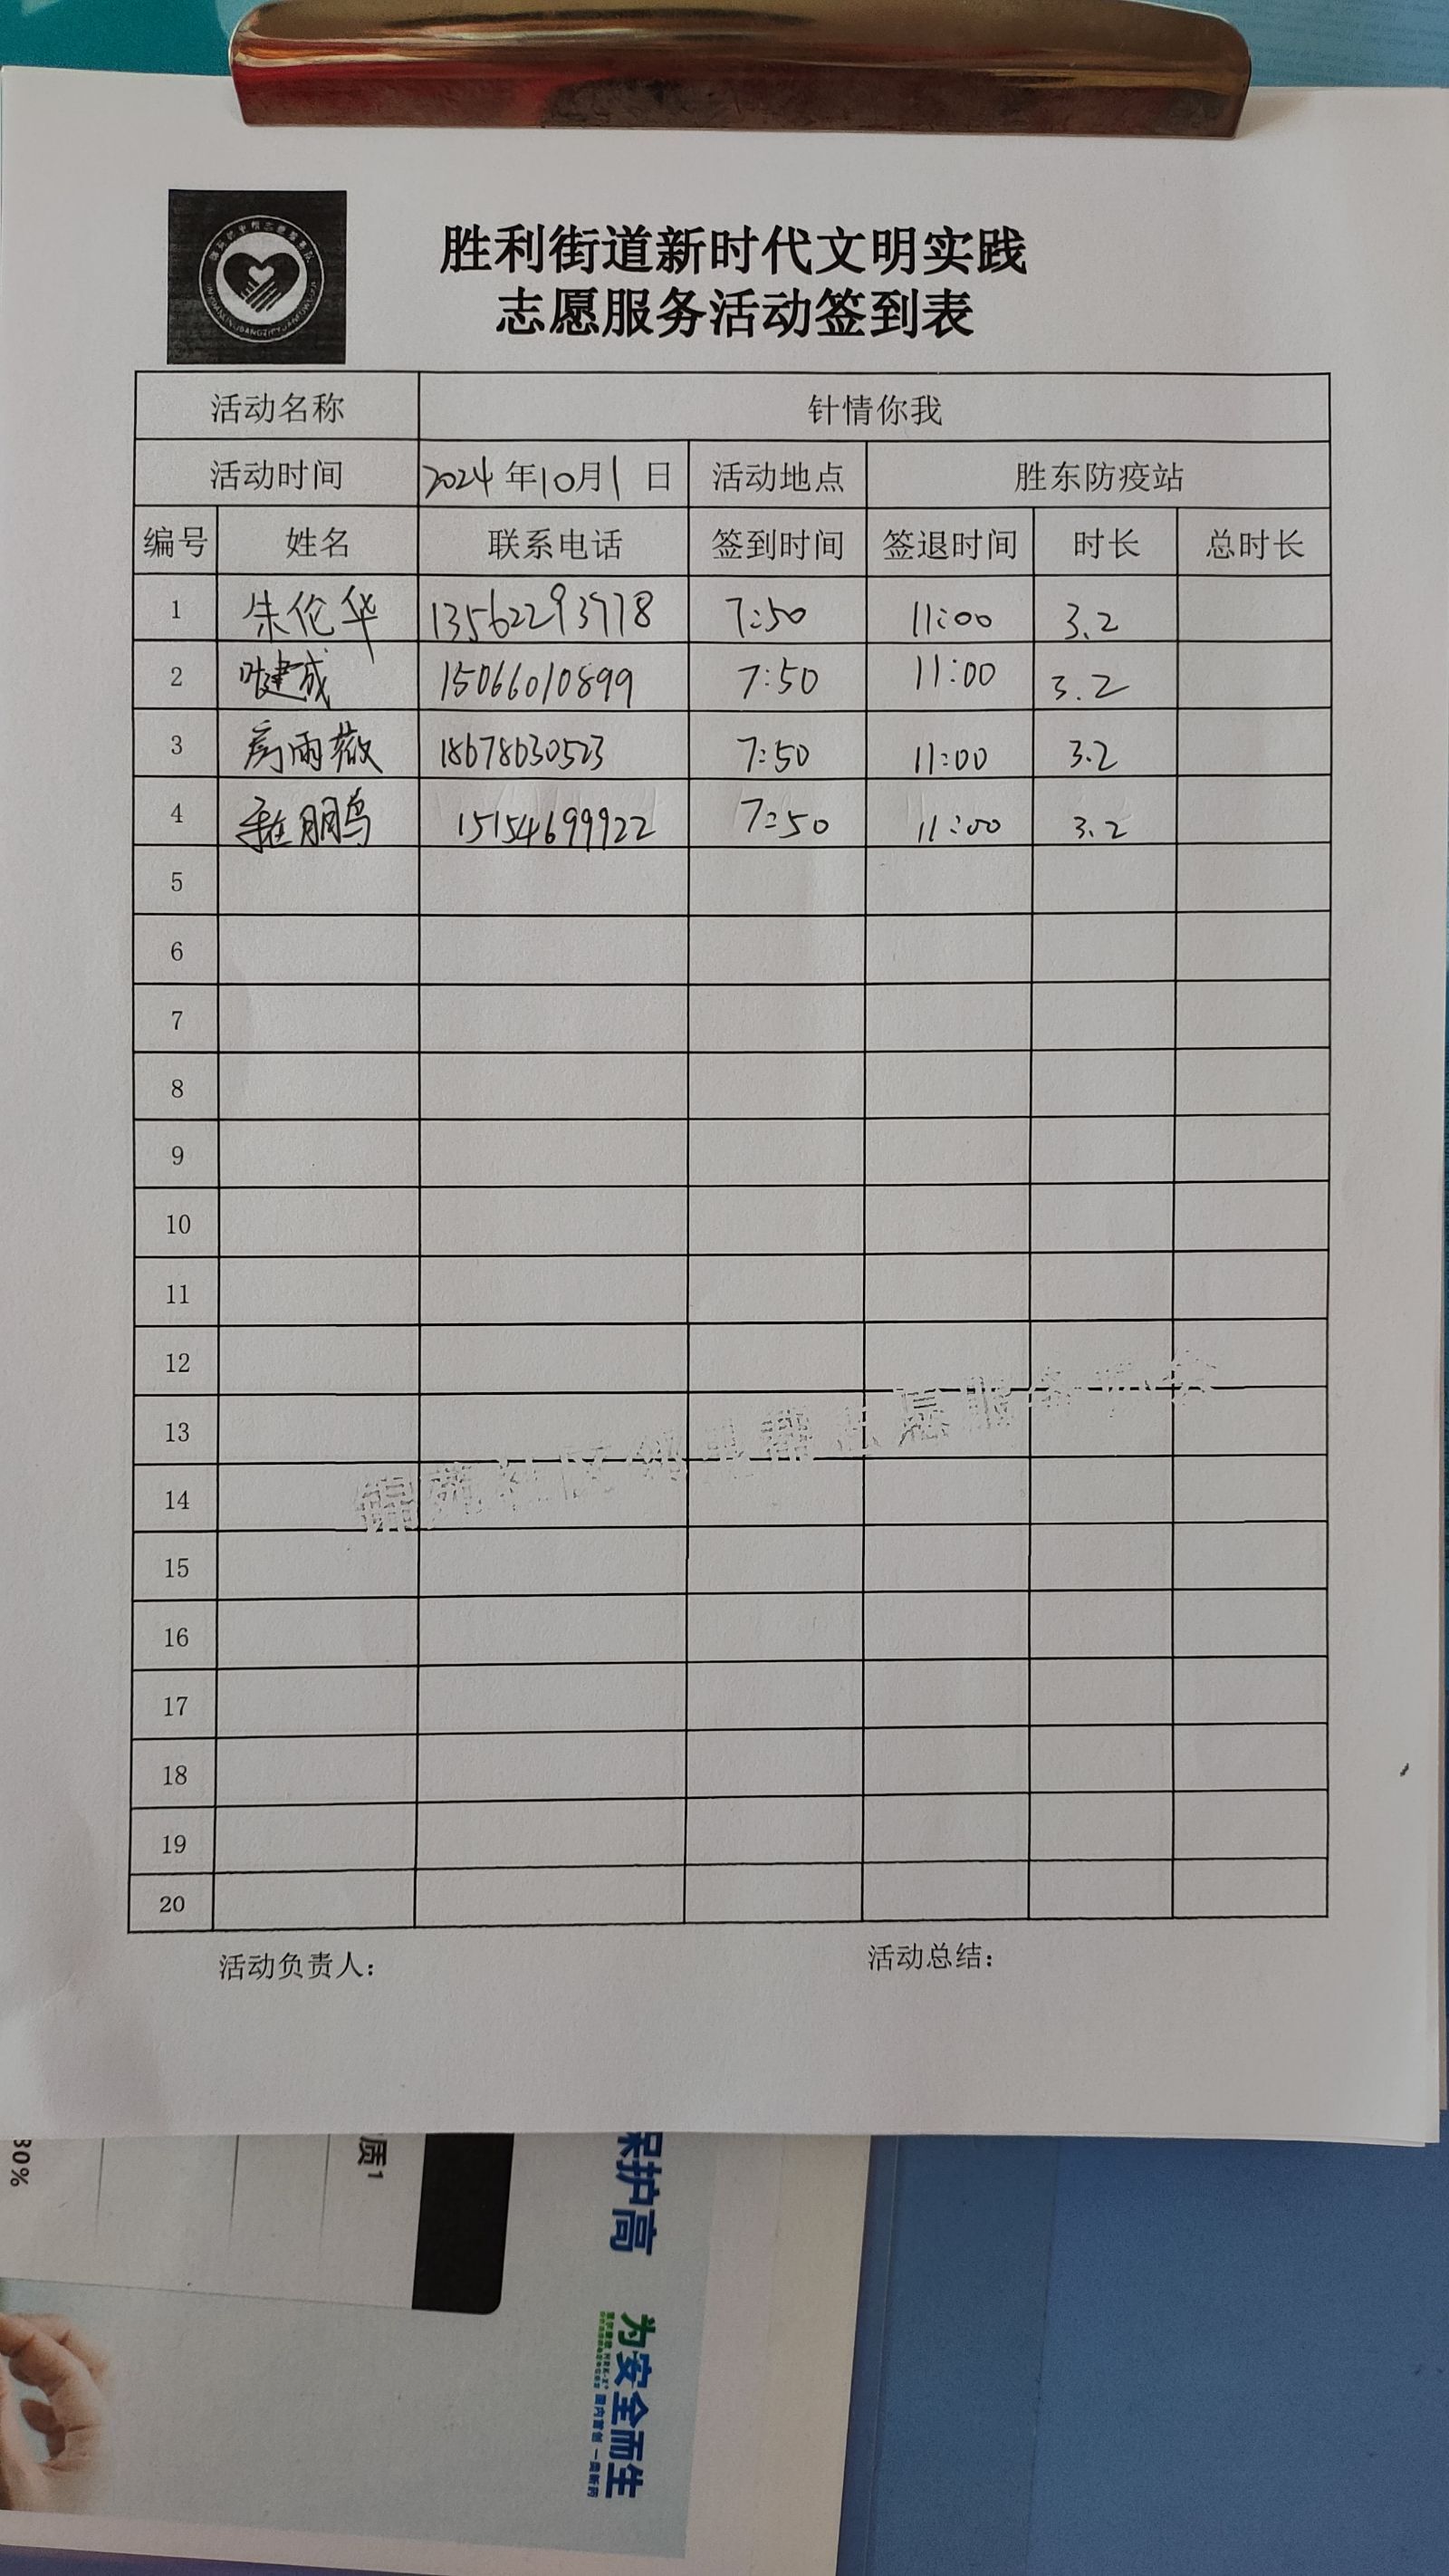 胜利街道新时代文明实践
志愿服务活动签到表
活动名称 针情你我
活动时间 2024 年10月1 日 活动地点 胜东防疫站
编号 姓名 联系电话 签到时间 签退时间 时长 总时长
1 朱伦华 13562293778 7:50 11:00 3.2
2 叶建成 15066010899 7:50 11:00 3.2
3 房雨薇 18678630523 7:50 11:00 3.2
4 程鹏 15154699922 7:50 11:00 3.2
5
6
7
8
9
10
11
12
13
14
15
16
17
18
19
20
活动负责人: 活动总结:
30%
质1
保护高
为安全而生
国内首创 一类新药